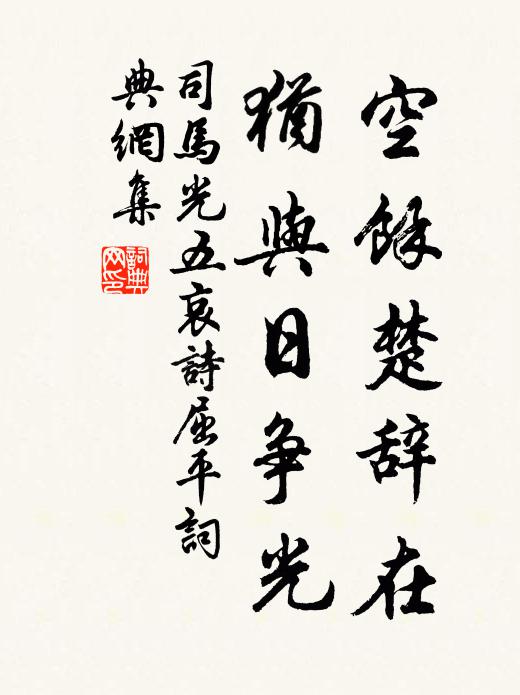 空餘楚辞在
猶與日争光
司馬光五哀詩屈平詞
典網集
詞典
网印